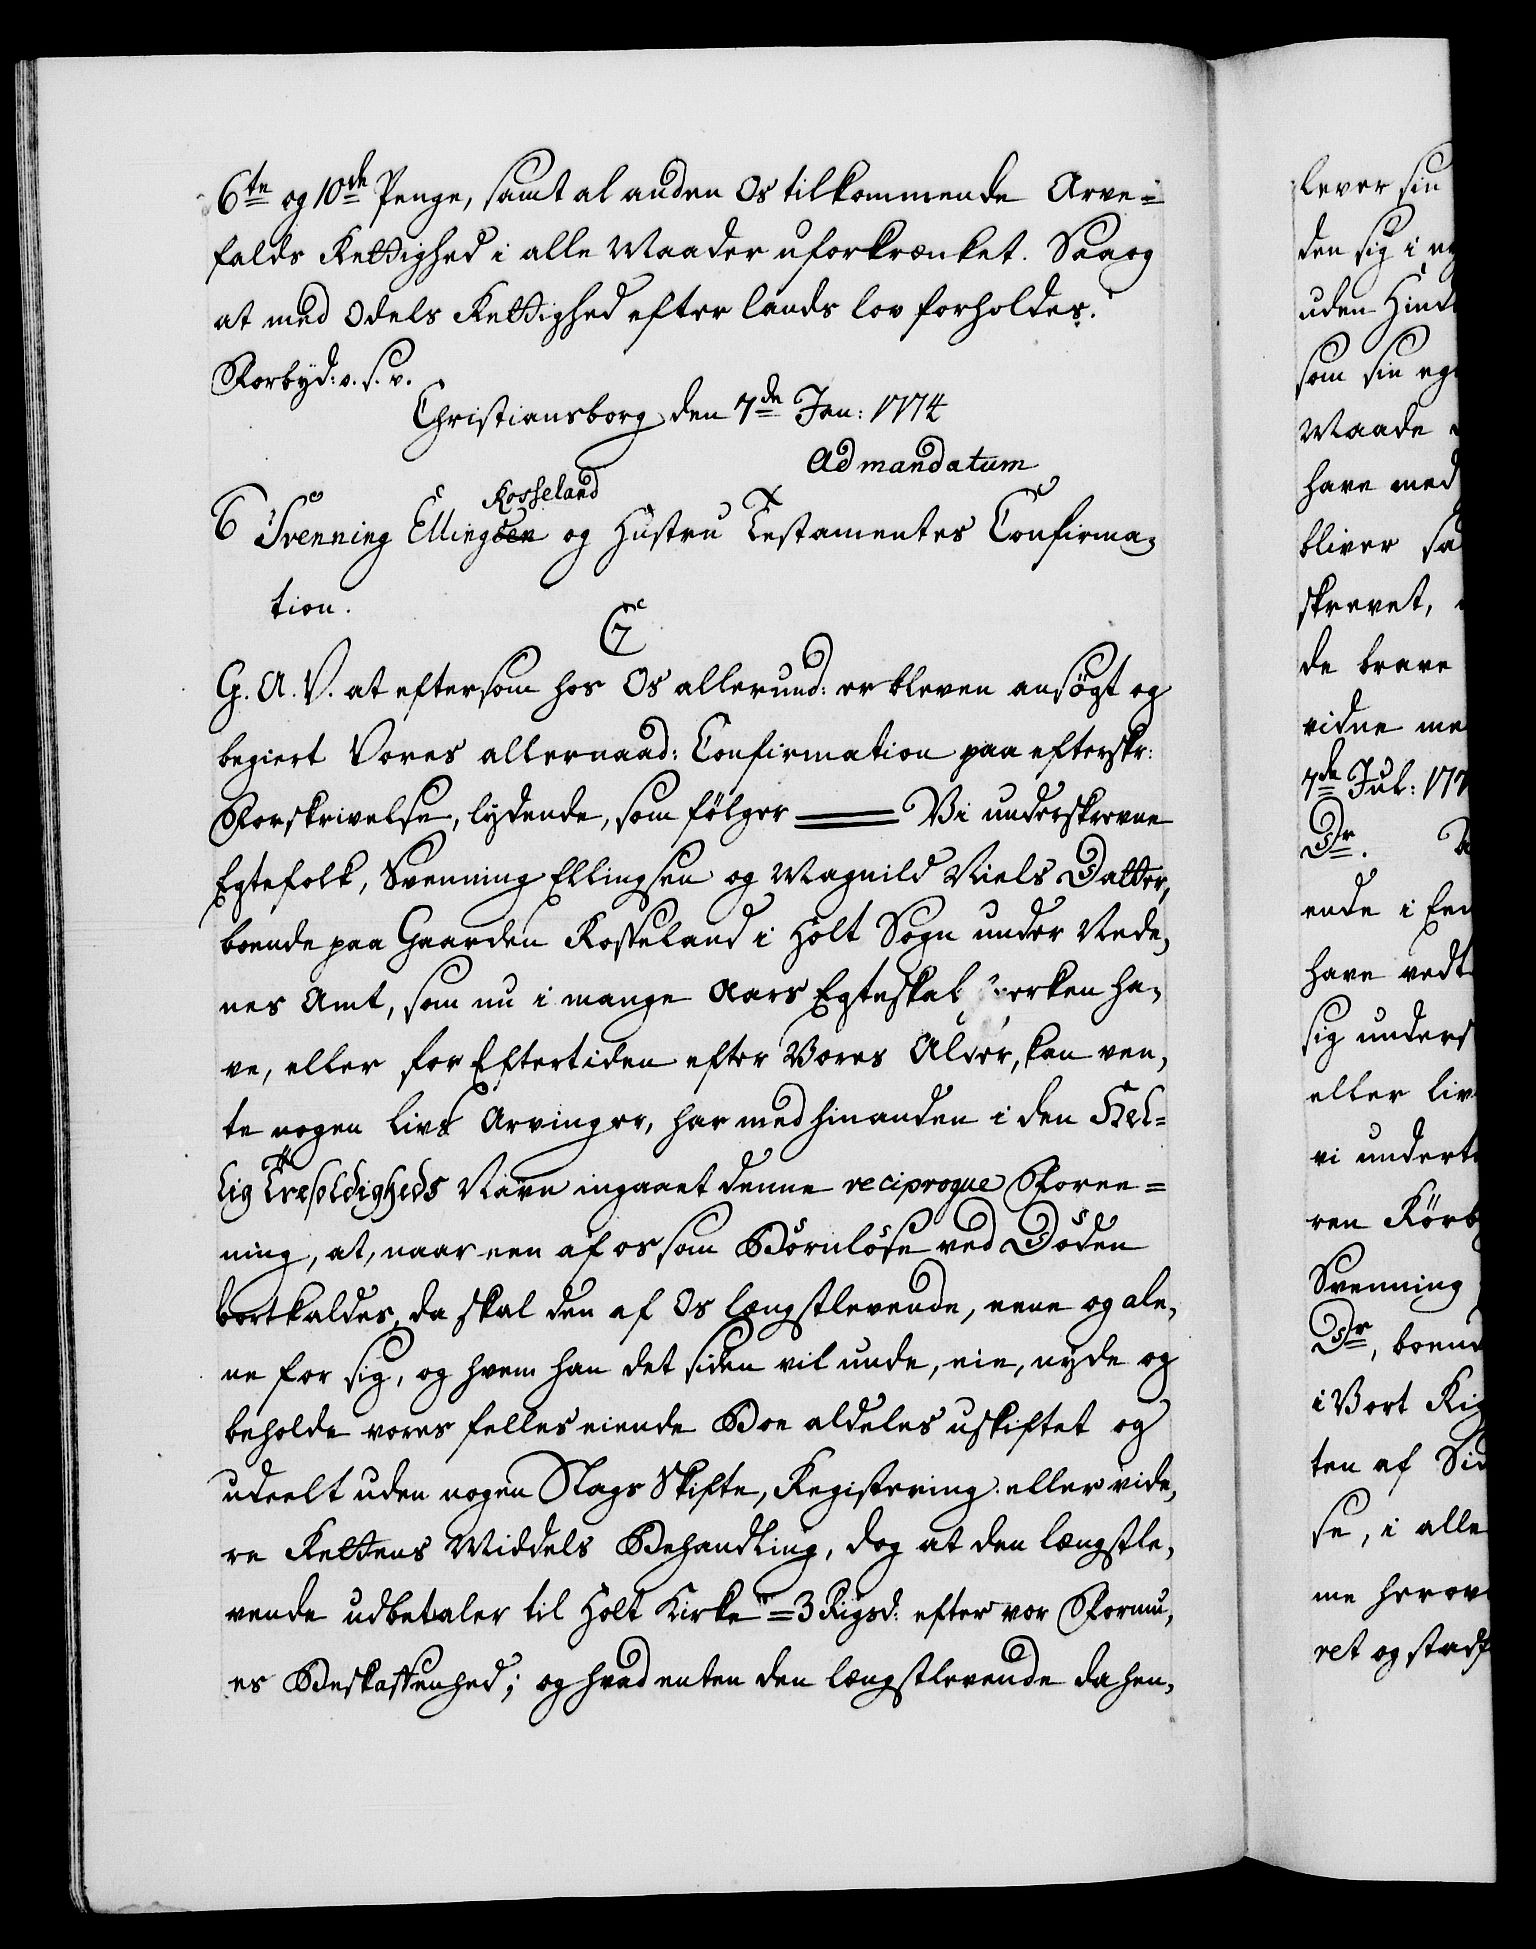 6te og 10de Penge, samt al anden Os tilkommende Arve=
falds Rettighed i alle Maader uforkrænket. Saa og
at med Odels Rettighed efter lands lov forholdes.
Forbyd: v. s. v.
Christiansborg den 7de Jan: 1774
Ad mandatum
Rosseland
6 Svenning Ellingsen og Hustru Testamentes Confirma,
tion.
C 7
G. A. V. at eftersom hos Os allerund: er bleven ansøgt og
begiert Vores allernaad: Confirmation paa efterskr:
Forskrivelse, lydende, som følger Vi underskrevne
Egtefolk, Svenning Ellingsen og Magnild Niels Datter,
boende paa Gaarden Rosseland i Holt Sogn under Nede,
nes Amt, som nu i mange Aars Egteskab hverken ha,
ve, eller for Eftertiden efter Vores Alder, kan ven,
te nogen livs Arvinger, har med hinanden i den Hel=
lig Træfoldigheds Navn ingaaet denne reciproque Foree=
ning, at, naar een af os som Børnløse ved Døden
bortkaldes, da skal den af Os længstlevende, eene og ale,
ne for sig, og hvem han det siden vil unde, eie, nyde og
beholde vores felles eiende Boe aldeles uskiftet og
udeelt uden nogen Slags Skifte, Registering eller vide,
re Rettens Middels Behandling, dog at den længstle,
vende udbetaler til Holt Kirke = 3 Rigsd: efter vor Formu,
es Beskaffenhed; og hvad enten den længstlevende da hen,
lever sin
den sig i
uden
som sin
Maade
have med
bliver
skrevet,
de brave
vidne
7de Jul:
Dr.
ende i
have
sig
eller
vi
ren
Svenning
Dr,
i Vort
ten af
se, i alle
me
ret og